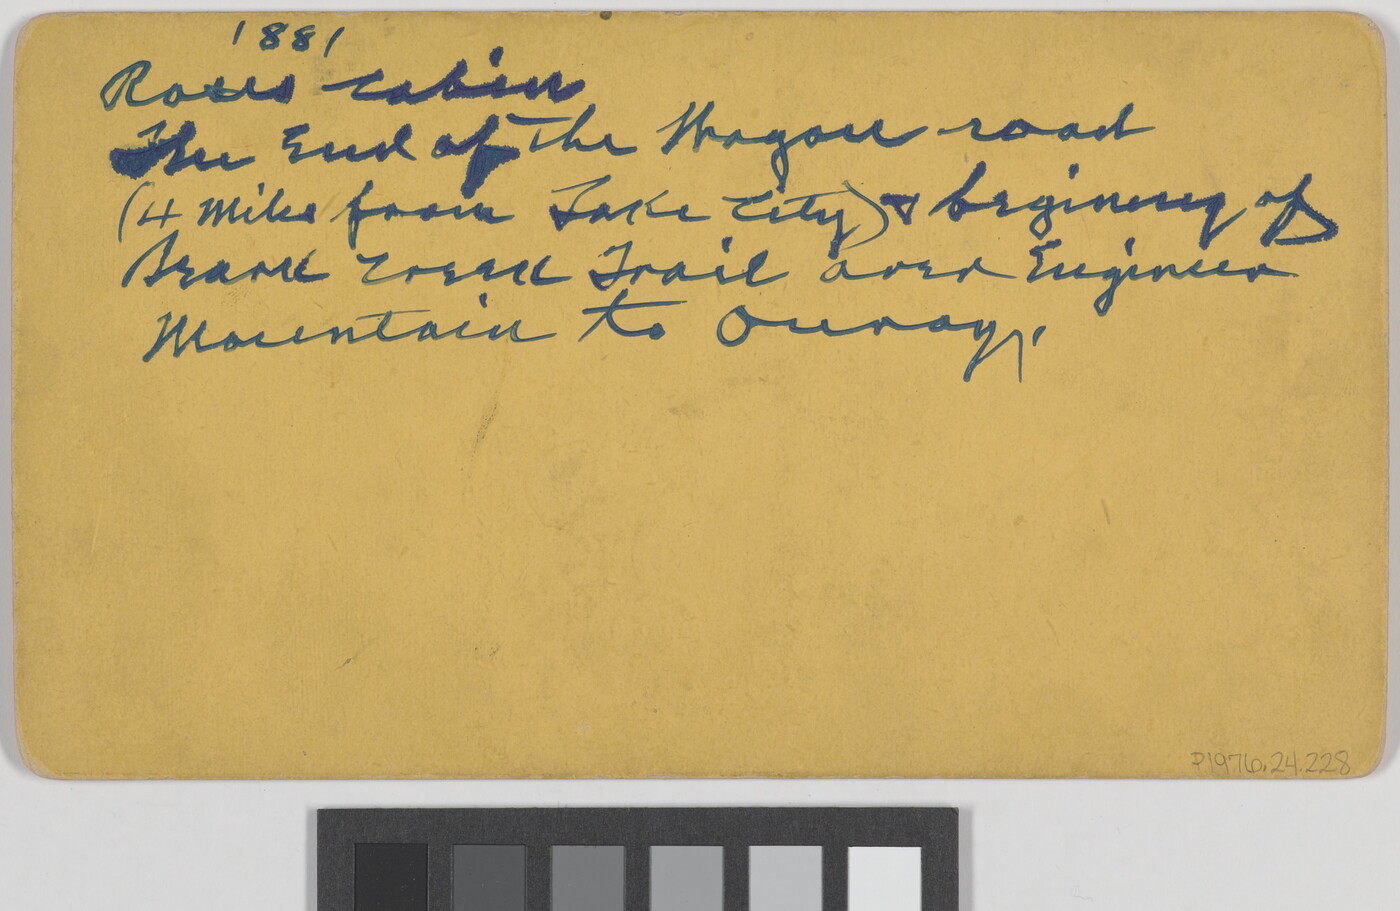 1881
Roses cabin
The End of The Wagon road
(4 Miles from Lake City) & begining of
Beark Creek Trail over Engineer
Mountain to Ouray,
P1976.24.228